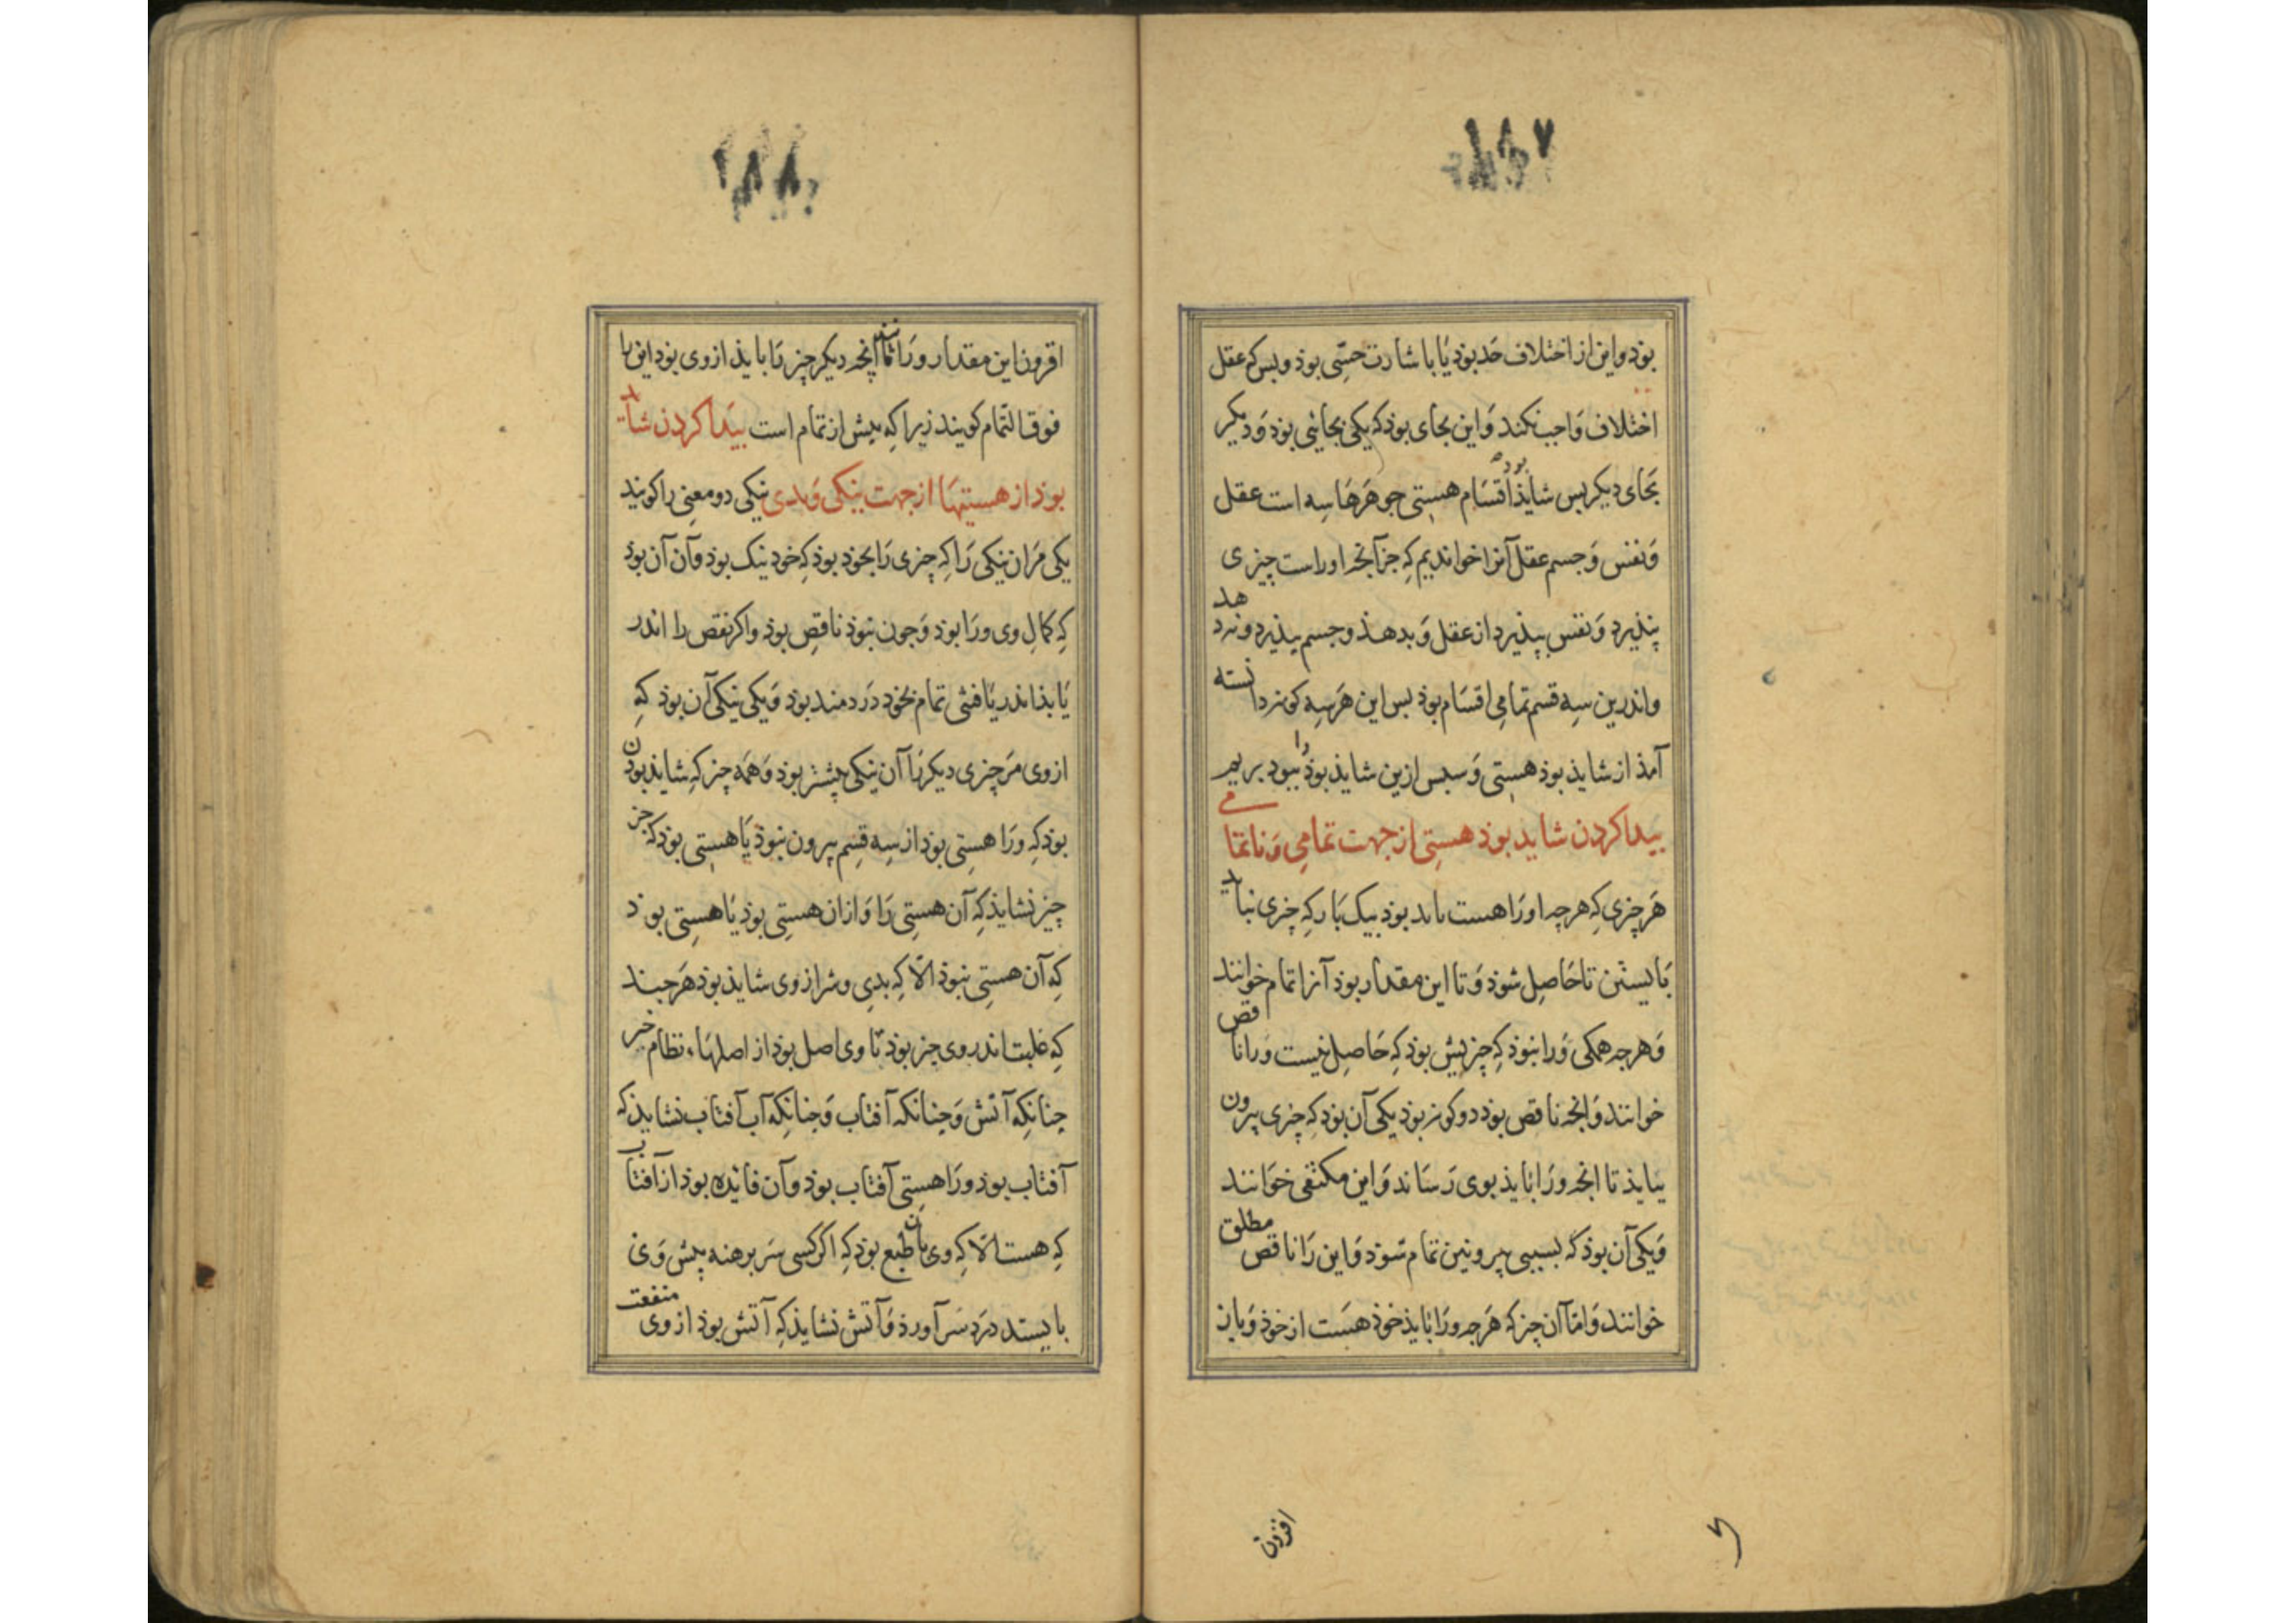 ۱۸۷
بوذ واین از اختلاف حَد بوذ یَا باشارت حسّی بوذ وبس که عقل
اختلاف وَاجب نکند وَاین بجای بوذ که یکی بجایٔی بوذ وَدیکر
بجَای دیکر بس شایذ بوذ اقسَام هستی جوهَرهَا سِه است عقل
وَنفس وَجسم عقل آنرا خواندیم کِه جز آنجه اوراست چیزی
پنذیرد وَنفس بپذیرد از عقل وَبدهذ وجسم بپذیرد وندهد
واندرین سِه قسم تمامِی اقسَام بوذ بس این هَرسِه کونه دانسته
آمذ از شایذ بوذ هستِی وَسبس ازین شایذ بوذ را ببود بریم
بیدا کردن شاید بوذ هستِی از جهت تمامِی وَناتمامی
هَرچیزی کِه هرچه اورَا هست باید بوذ بیک بَار کِه چیزی نبایذ
بَایستن تا حَاصِل شوذ وَتا این مقدار بوذ آنرا تمام خوانند
وَهرجه همکی وَرا نبوذ کِه چیزیش بوذ کِه حَاصِل نیست وَرا ناقص
خوانند وَانجه ناقص بوذ دو کونه بوذ یکی آن بوذ کِه چیزی بیرون
بیایذ تا انجه وَرا بَایذ بوی رَسَاند وَاین مکتفی خوَانند
وَیکی آن بوذ که بسببی بیرونین تمام شوَذ وَاین رَا ناقص مطلق
خوانند وَامّا آن چیز که هَرجه وَرا بَایذ خوذ هسَت از خوذ وَباز
افزون
۱۸۸
افزون این مقدار ورَا تا آنجه دیکر چیز رَا بایذ از وی بوذ این را
فوق التّمام کویند زیرا کِه بیش از تمام است بَیدا کردن شاید
بوذ از هستیهَا از جهت نیکی وَبدی نیکی دو معنِی را کویند
یکی مرَان نیکی رَا کِه چیزی رَا بخوذ بوذ کِه خود نیک بوذ وَآن آن بوذ
کِه کمالِ وی ورَا بوذ وَجون نبوذ ناقِص بوذ واکر نقص را اندر
یَابذ اندر یَافتی تمام بخود دَردمند بوذ وَیکی نیکی آن بوذ کِه
از وی مرَ چیزی دیکر رَا آن نیکی بیشتر بوذ وَهمَه چیز کِه شایذ بوذن
بوذ کِه ورَا هستِی بوذ از سِه قسِم بیرون نبوذ یَا هستِی بوذ که جز
چیز نشایذ کِه آن هستِی رَا وَازان هستِی بوذ یَا هستِی بوذ
کِه آن هستِی نبوذ الّا کِه بدِی وشر از وی شایذ بوذ هَرجند
کِه غلبت اندر وی چیز بوذ تا وی اصل بوذ از اصلهَاء نظام خیر
جنانکِه آتش وَجنانکه آفتاب وَجنانکِه آب آفتاب نشایذ که
آفتاب بوذ ورَا هستِی آفتاب بوذ وآن فایده بوذ از آفتاب
کِه هست الّا کِه وی بآن طبع بوذ کِه اکر کسی سَر برهنه پیش وَی
بایستد دَرد سَر آورذ وَآتش نشایذ کِه آتش بوذ از وی منفعت